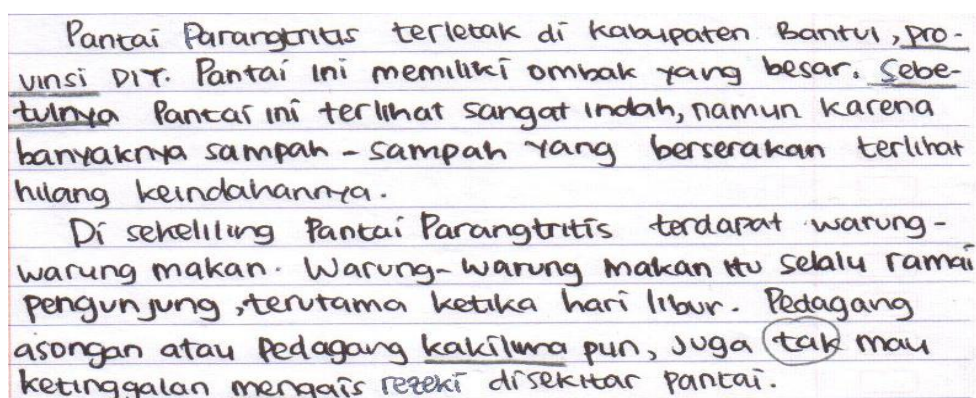 Pantai Parangtritis terletak di kabupaten Bantul, pro-
vinsi DIY. Pantai ini memiliki ombak yang besar. Sebe-
tulnya Pantai ini terlihat sangat indah, namun karena
banyaknya sampah - sampah yang berserakan terlihat
hilang keindahannya.
Di sekeliling Pantai Parangtritis terdapat warung-
warung makan. Warung-warung makan itu selalu ramai
pengunjung, terutama ketika hari libur. Pedagang
asongan atau Pedagang kakilima pun, juga tak mau
ketinggalan mengais rezeki disekitar pantai.